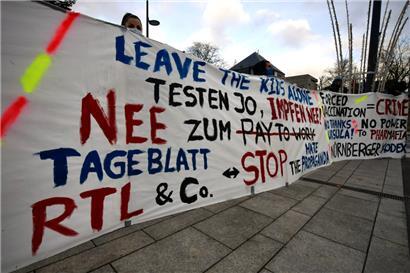 LEAVE THE KIDS ALONE
TESTEN JO, IMPFEN NEE!
NEE ZUM PAY TO WORK
TAGEBLATT
RTL & Co. ↔ STOP
THE PROPAGANDA
FORCED VACCINATION = CRIME
NO THANKS URSULA!
NO POWER TO PHARMAFIA
NÜRNBERGER KODEX